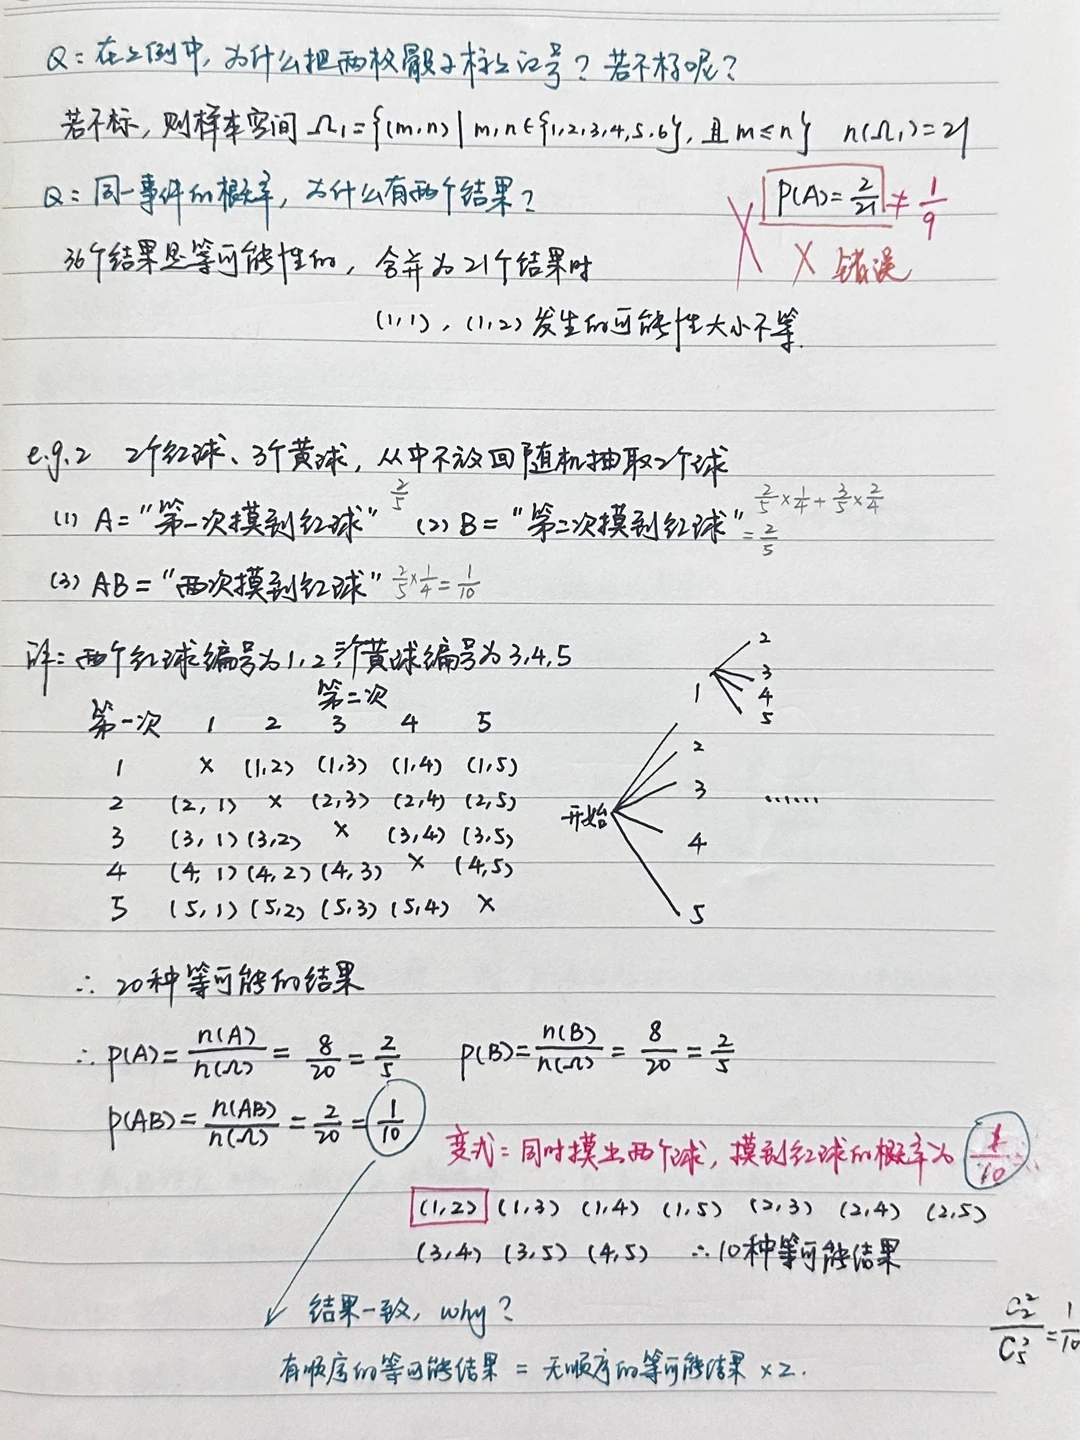 Q：在上例中，为什么把两枚骰子标上记号？若不标呢？
若不标，则样本空间 Ω₁={(m,n)|m,n∈{1,2,3,4,5,6}，且m≤n} n(Ω₁)=21
Q：同一事件的概率，为什么有两个结果？
P(A)=2/21 ≠ 1/9
× 错误
36个结果是等可能性的，合并为21个结果时
(1,1)，(1,2)发生的可能性大小不等.
e.g.2 2个红球、3个黄球，从中不放回随机抽取2个球
(1) A="第一次摸到红球" 2/5 (2) B="第二次摸到红球" 2/5×1/4+3/5×2/4=2/5
(3) AB="两次摸到红球" 2/5×1/4=1/10
解：两个红球编号为1,2 三个黄球编号为3,4,5
第二次
第一次 1 2 3 4 5
1 × (1,2) (1,3) (1,4) (1,5)
2 (2,1) × (2,3) (2,4) (2,5)
3 (3,1) (3,2) × (3,4) (3,5)
4 (4,1) (4,2) (4,3) × (4,5)
5 (5,1) (5,2) (5,3) (5,4) ×
开始
1 2 3 4 5
2 3 4 5
……
∴ 20种等可能的结果
∴ P(A)=n(A)/n(Ω)=8/20=2/5 P(B)=n(B)/n(Ω)=8/20=2/5
P(AB)=n(AB)/n(Ω)=2/20=1/10
变式：同时摸出两个球，摸到红球的概率为 1/10
(1,2) (1,3) (1,4) (1,5) (2,3) (2,4) (2,5)
(3,4) (3,5) (4,5) ∴10种等可能结果
结果一致，why？
C₂²/C₅²=1/10
有顺序的等可能结果 = 无顺序的等可能结果 ×2.